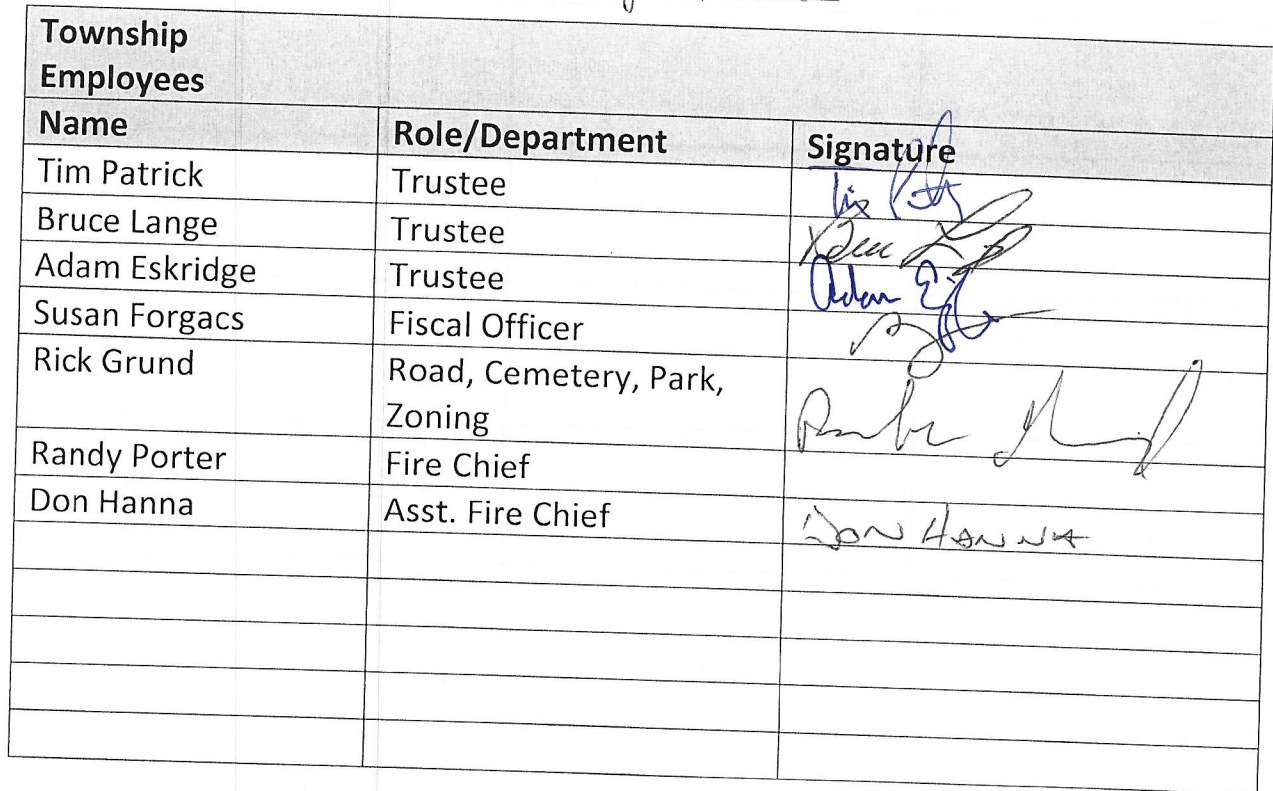 Township
Employees
Name Role/Department Signature
Tim Patrick Trustee Tim
Bruce Lange Trustee
Adam Eskridge Trustee Adam
Susan Forgacs Fiscal Officer
Rick Grund Road, Cemetery, Park,
Zoning
Randy Porter Fire Chief
Don Hanna Asst. Fire Chief DON HANNA